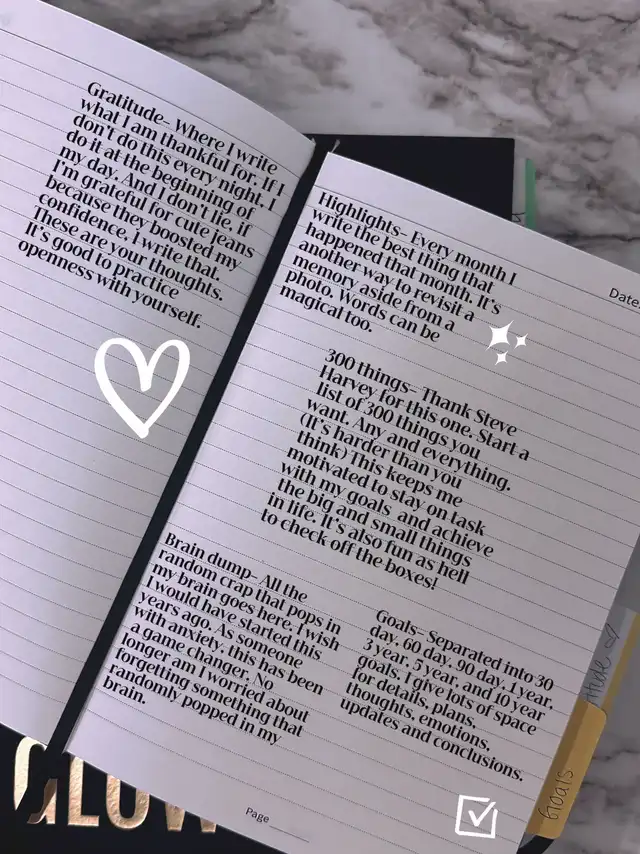 Gratitude- Where I write
what I am thankful for. If I
don't do this every night. I
do it at the beginning of
my day. And I don't lie, if
I'm grateful for cute jeans
because they boosted my
confidence, I write that.
These are your thoughts.
It's good to practice
openness with yourself.
Date:
Highlights- Every month I
write the best thing that
happened that month. It's
another way to revisit a
memory aside from a
photo. Words can be
magical too.
300 things- Thank Steve
Harvey for this one. Start a
list of 300 things you
want. Any and everything.
(It's harder than you
think) This keeps me
motivated to stay on task
with my goals and achieve
the big and small things
in life. It's also fun as hell
to check off the boxes!
Brain dump- All the
random crap that pops in
my brain goes here. I wish
I would have started this
years ago. As someone
with anxiety, this has been
a game changer. No
longer am I worried about
forgetting something that
randomly popped in my
brain.
Goals- Separated into 30
day, 60 day, 90 day, 1 year,
3 year, 5 year, and 10 year
goals. I give lots of space
for details, plans,
thoughts, emotions,
updates and conclusions.
Page
Goals
GLOW